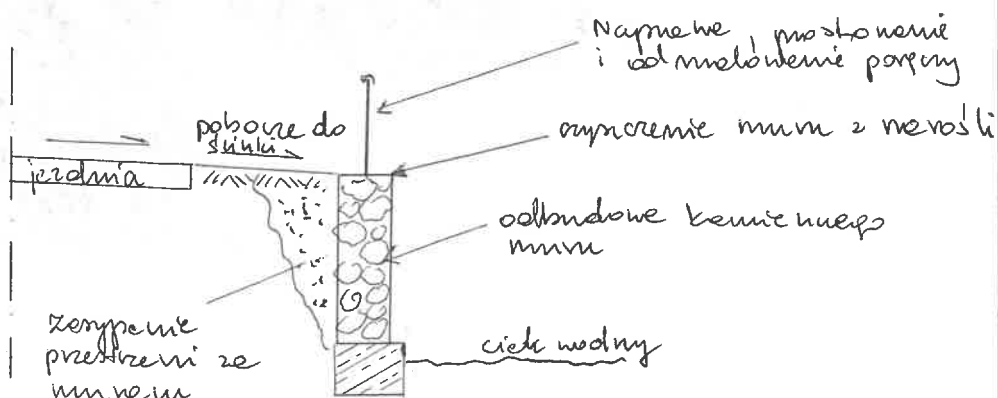 Naprawa, prostowanie
i odmalowanie poręczy
pobocze do
ścinki
oczyszczenie muru z narośli
jezdnia
odbudowa kamiennego
muru
zasypanie
przestrzeni za
murem
ciek wodny